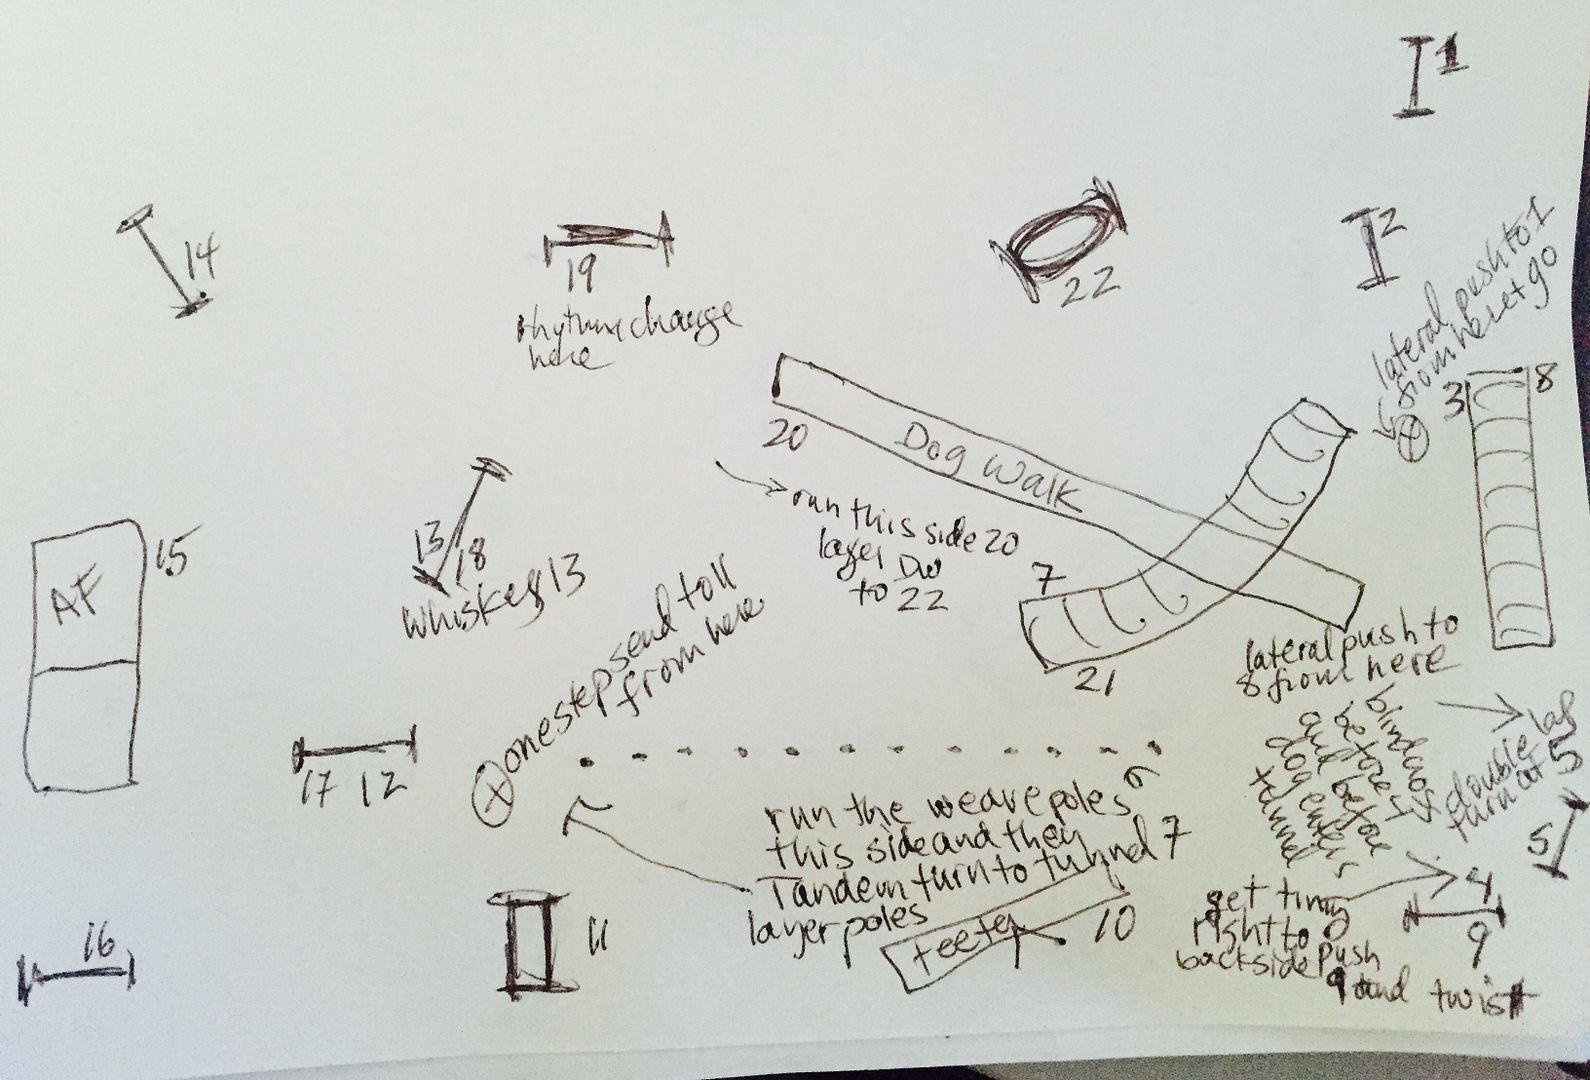 1
2
lateral push to 1
from here + go
14
19
rhythm change
here
22
3
8
20
Dog Walk
run this side 20
layer DW
to 22
15
AF
13
18
Whiskey 13
one step send to 11
from here
7
21
lateral push to
8 from here
blind
before
and before
dog enters
tunnel
double lap
turn at 5
5
17 12
6
run the weave poles
this side and then
Tandem turn to tunnel 7
layer poles
get timing
right to
backside push
9 and twist
4
9
teeter
10
11
16